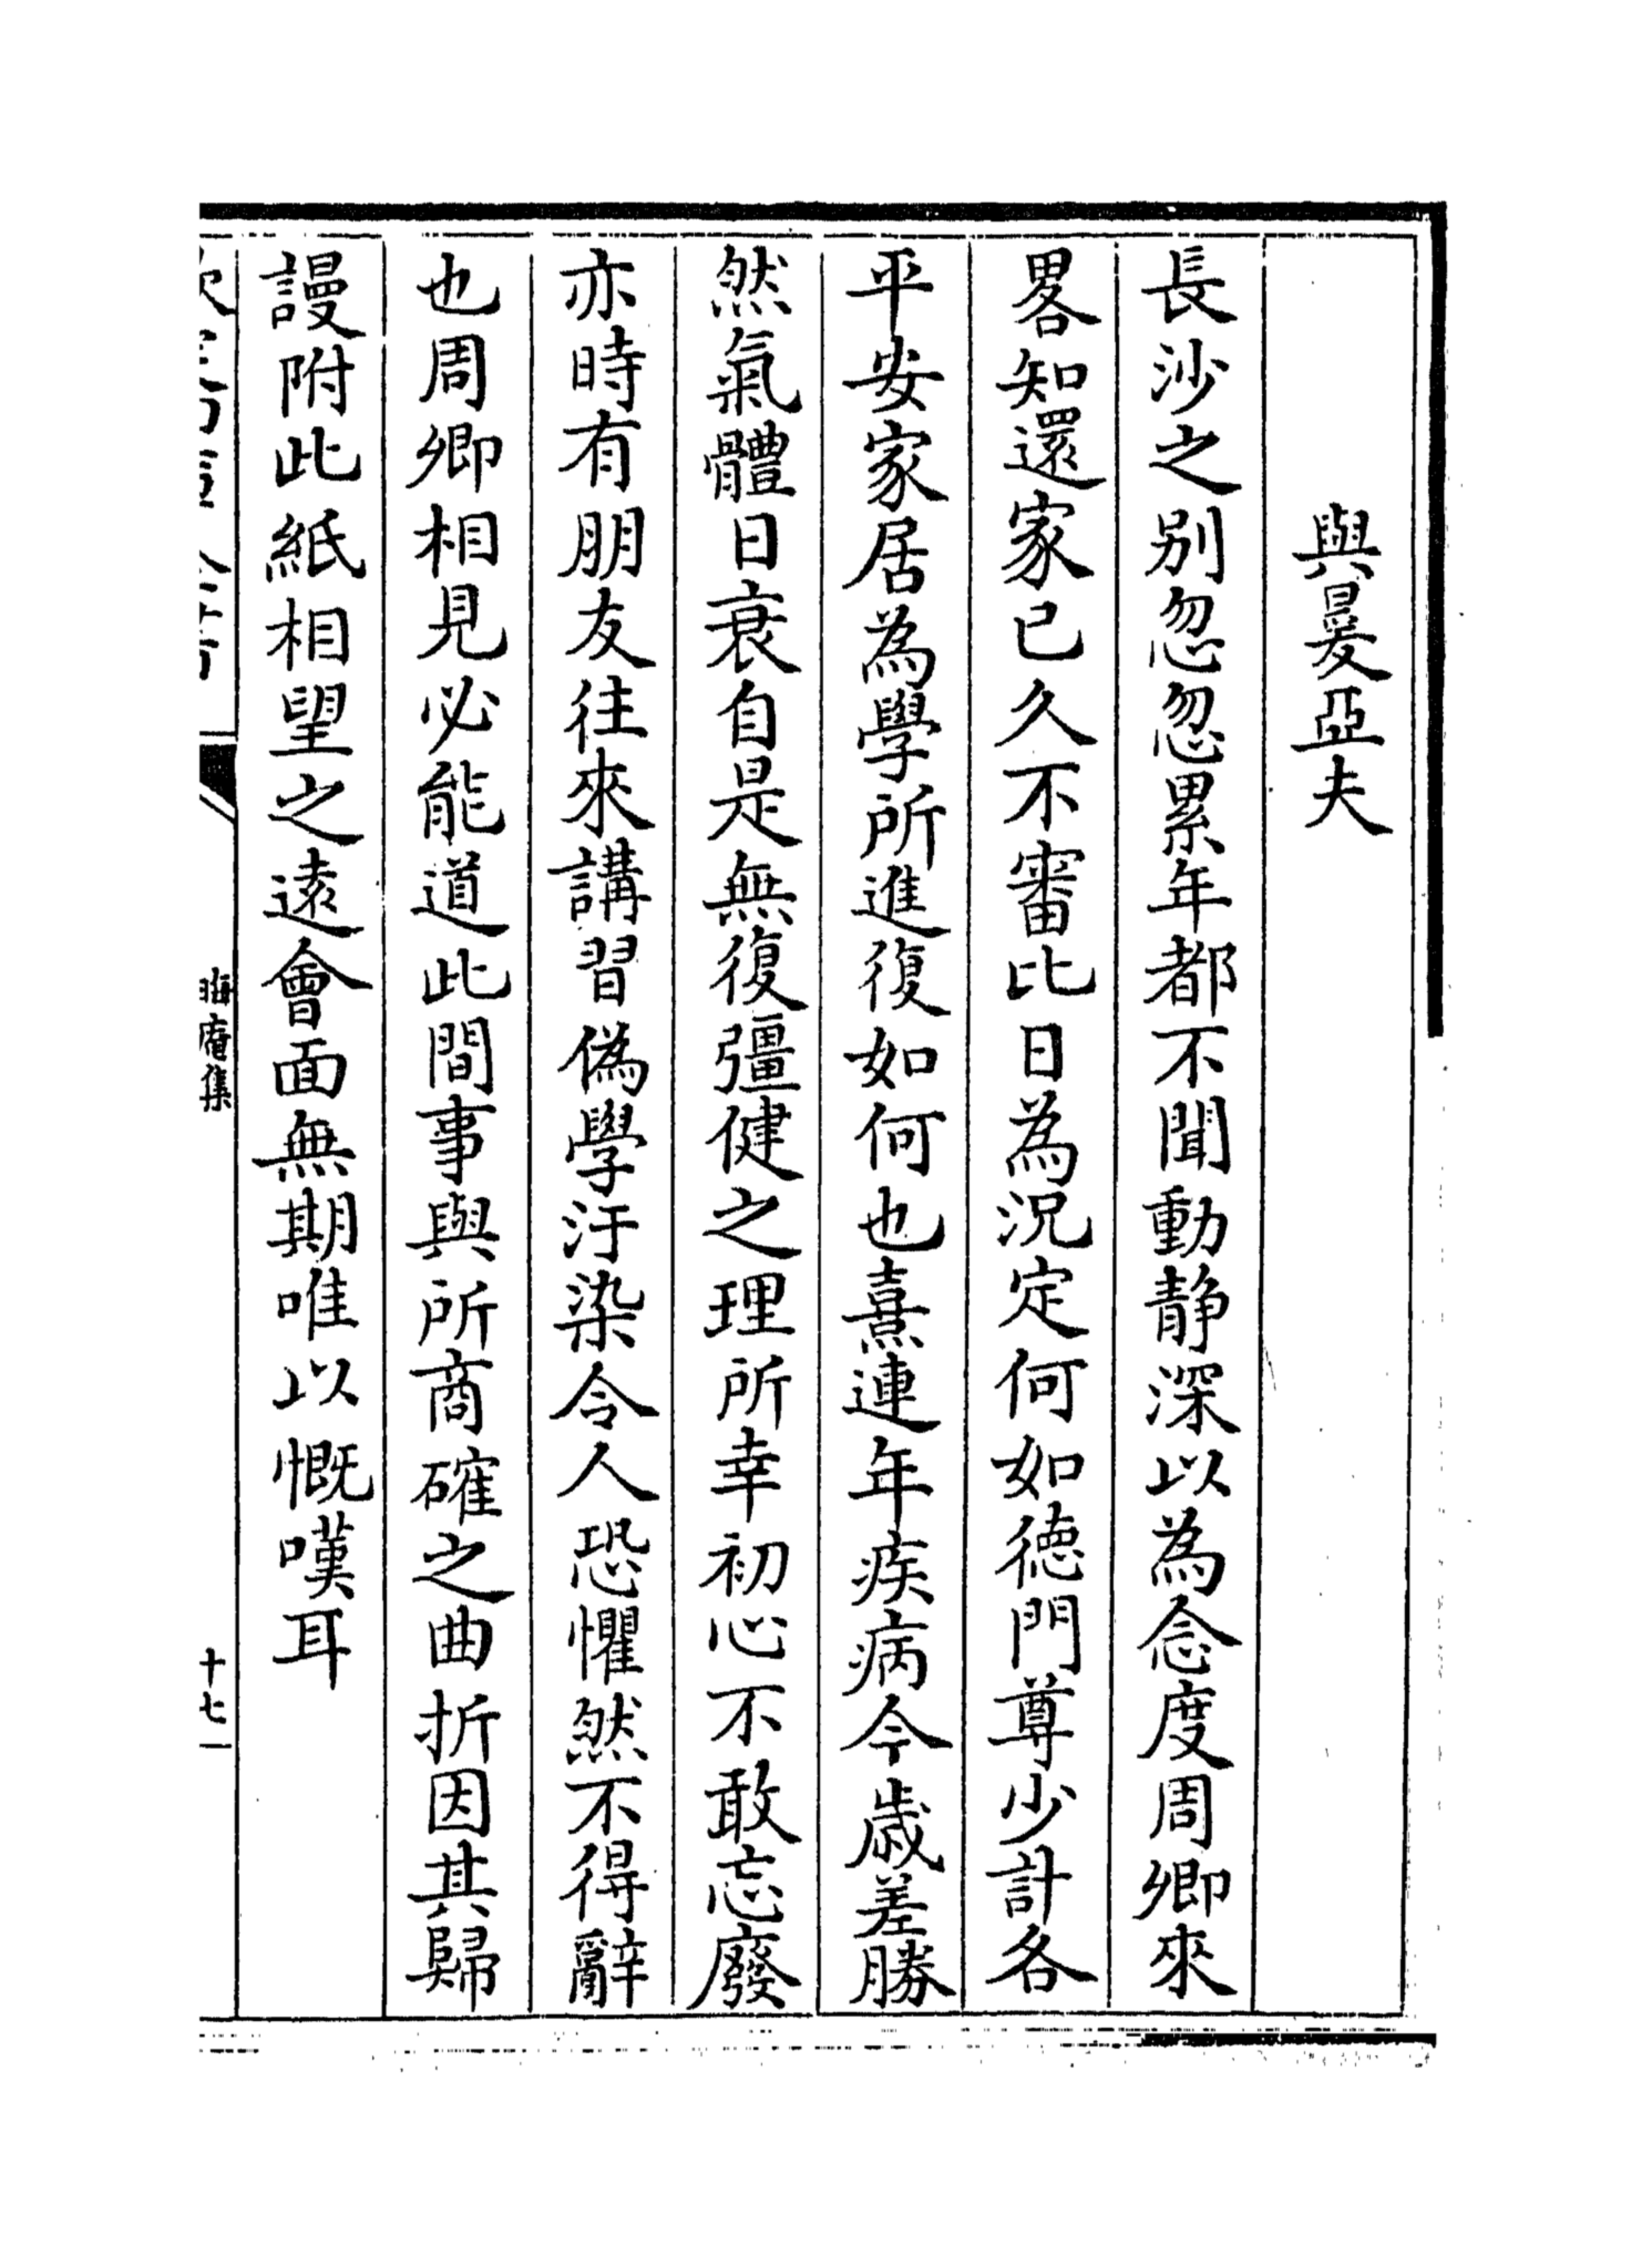 與㬊亞夫
長沙之別忽忽累年都不聞動靜深以為念度周卿來
畧知還家已久不審比日為況定何如德門尊少計各
平安家居為學所進復如何也熹連年疾病今歲差勝
然氣體日衰自是無復彊健之理所幸初心不敢忘廢
亦時有朋友往來講習偽學汙染令人恐懼然不得辭
也周卿相見必能道此間事與所商確之曲折因其歸
謾附此紙相望之遠會面無期唯以慨嘆耳
晦庵集
十七